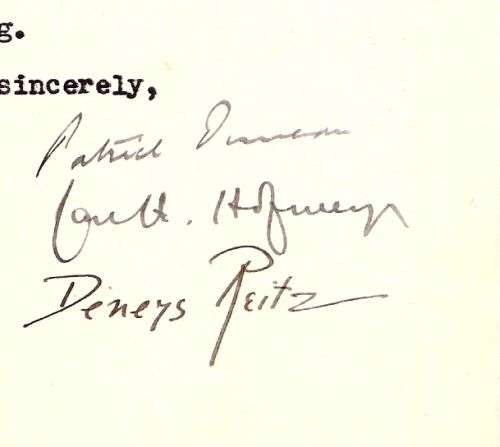 g.
sincerely,
Patrick Duncan
Jan H. Hofmeyr
Deneys Reitz